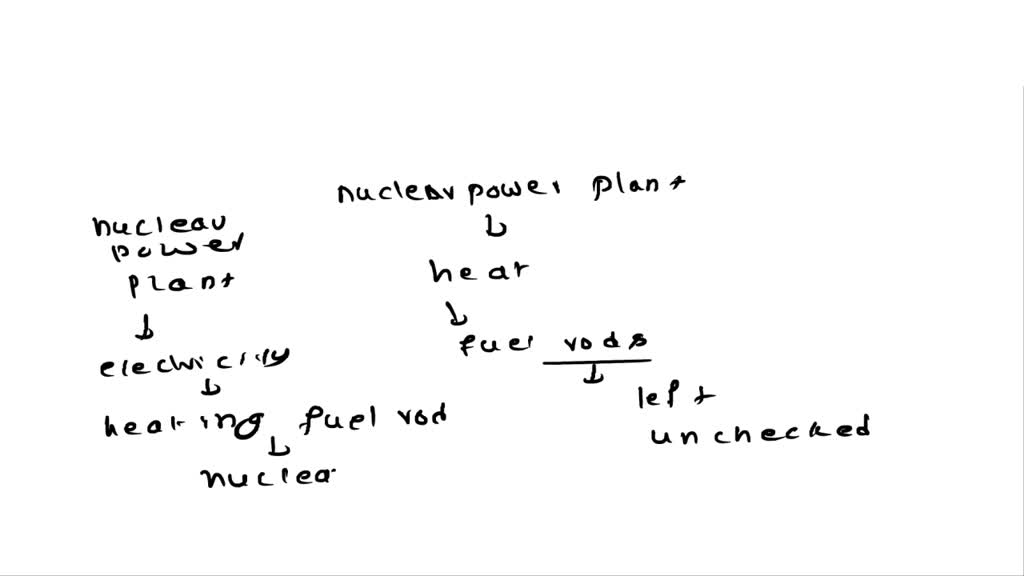 nuclear power plant
heat
fuel rods
left
unchecked
nuclear
power
plant
electricity
heating fuel rod
nuclea